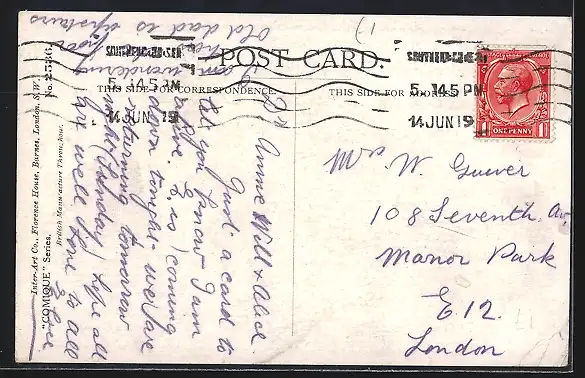 POST CARD.
THIS SIDE FOR CORRESPONDENCE.
THIS SIDE FOR ADDRESS
SOUTHEND-ON-SEA
5. 14 5 PM
14 JUN 19
SOUTHEND-ON-SEA
5. 14 5 PM
14 JUN 19
ONE PENNY
1
1
Mrs W. Guiver
108 Seventh Av.
Manor Park
E.12.
London
Dr Annie Will & Alice.
Just a card to
let you know I am
alive. E. is coming
down tonight we are
returning tomorrow
night (Sunday) hope all
are well love to all
I am wondering
how
Old dad is upstairs
"COMIQUE" Series.
Inter-Art Co., Florence House, Barnes, London, S.W.
British Manufacture Throughout.
No. 2536.